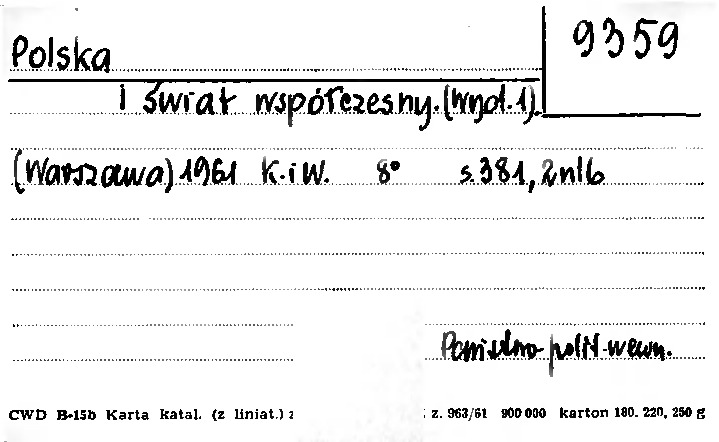 Polska
9359
i świat współczesny. (Wyd. 1).
(Warszawa) 1961 K. i W. 8° s. 381, 2 nlb
polit-wewn.
CWD B-15b Karta katal. (z liniat.) z. 963/61 900 000 karton 180. 220, 250 g